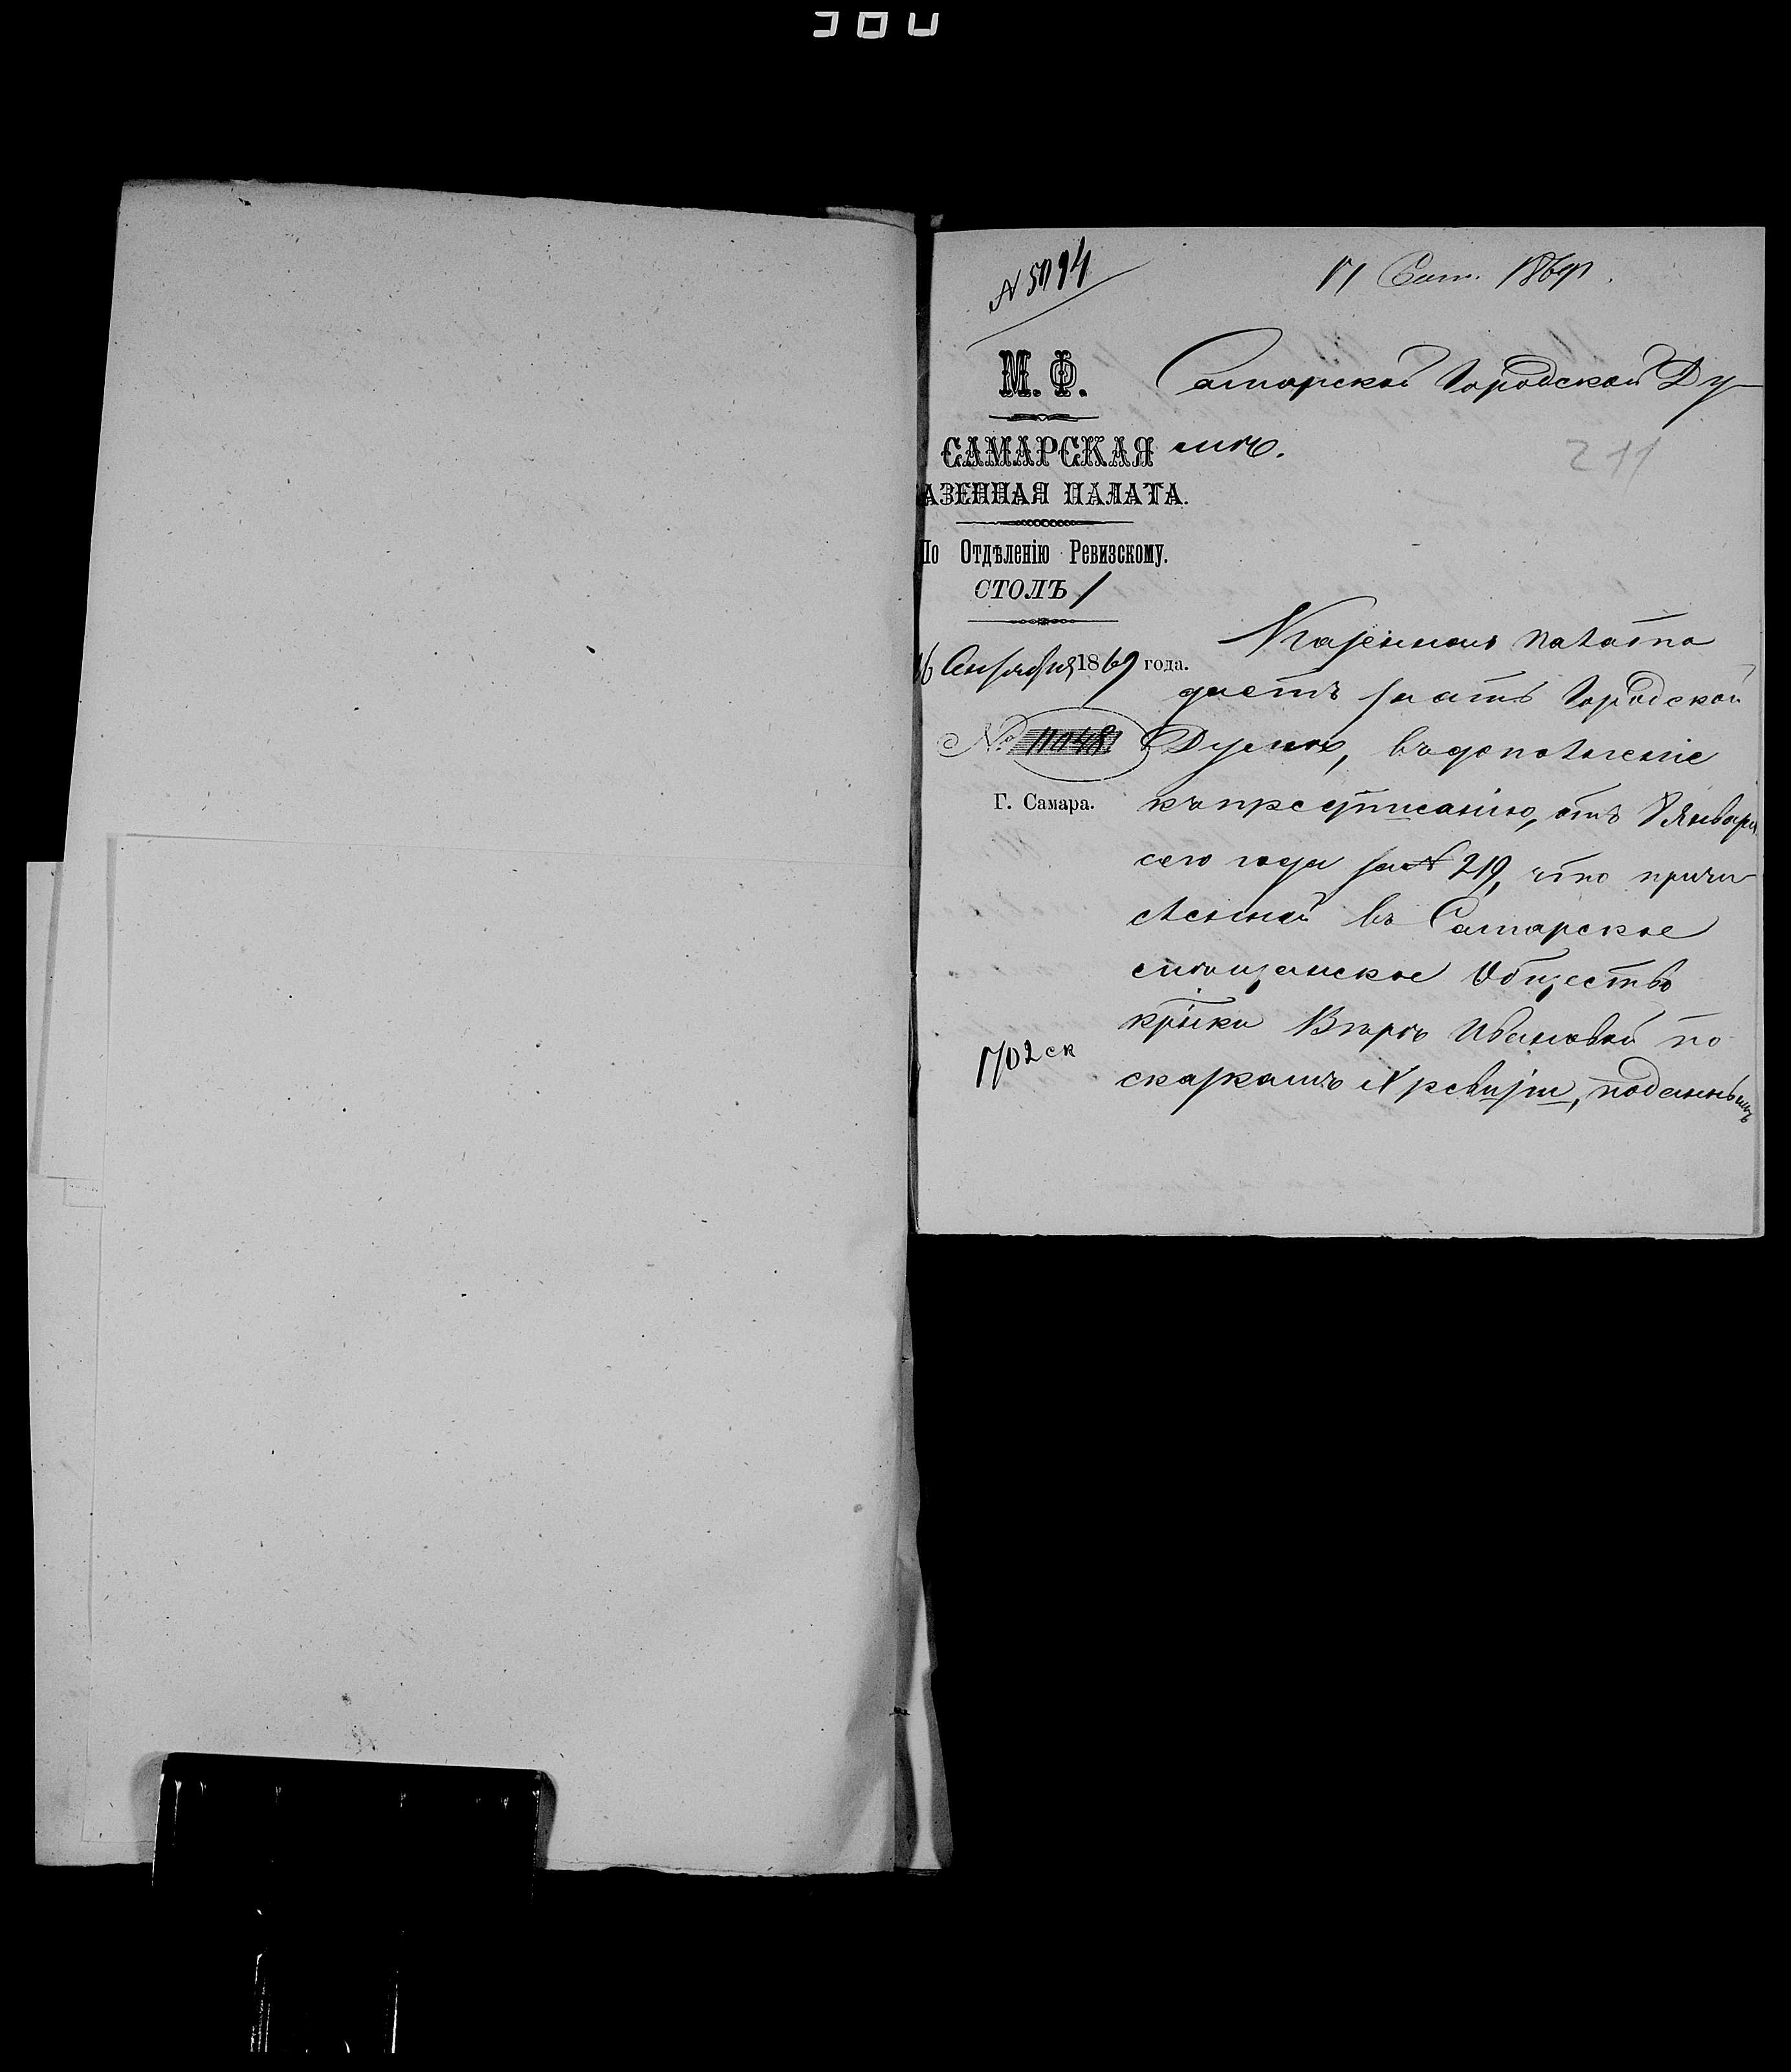 № 5094
17 Сент. 1869 г.
М. Ф.
САМАРСКАЯ
АЗЕННАЯ ПАЛАТА.
По Отдѣленію Ревизскому.
СТОЛЪ 1
16 Сентября 1869 года.
№ 11048
Г. Самара.
1702 ск
Самарской Городской Ду-
мѣ.
211
Казенная палата
даетъ знать Городской
Думѣ, въ дополненіе
къ предписанію, отъ 8 Января
сего года за № 219, что причи-
сленной въ Самарское
мѣщанское Общество
Вѣрѣ Ивановой по
сказкамъ X ревизіи, поданнымъ